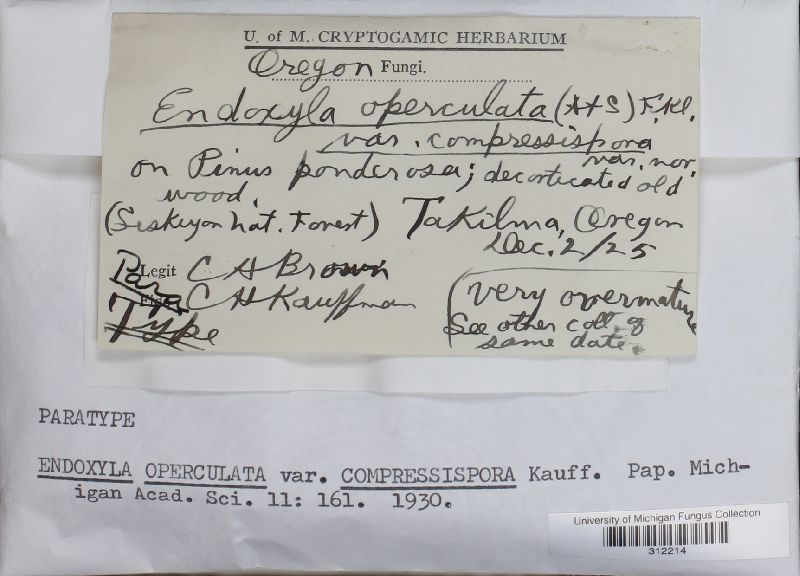 U. of M. CRYPTOGAMIC HERBARIUM
Oregon Fungi.
Endoxyla operculata (A+S) F.Kl.
var. compressispora
var. nov.
on Pinus ponderosa; decorticated old
wood.
(Siskiyou Nat. Forest) Takilma, Oregon
Dec. 2/25
Legit C H Brown
C H Kauffman
Para
Type
(very overmature
See other coll. of
same date.
PARATYPE
ENDOXYLA OPERCULATA var. COMPRESSISPORA Kauff. Pap. Mich-
igan Acad. Sci. 11: 161. 1930.
University of Michigan Fungus Collection
312214